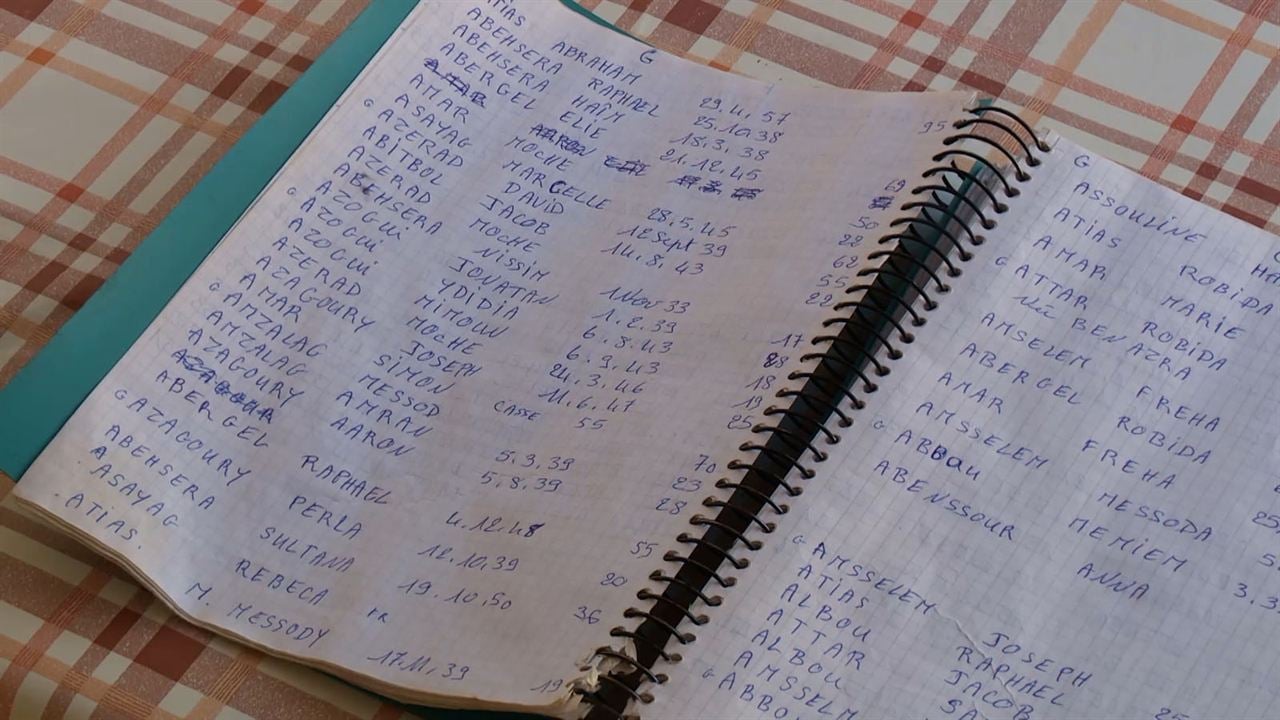 G
ATIAS ABRAHAM 29.4.57 95
ABEHSERA RAPHAEL 25.10.38
ABEHSERA HAÏM 18.3.38
ABERGEL ELIE 21.12.45 69
AMAR AARON
AMAR MOCHE 28.5.45 50
ASAYAG MARCELLE 12 Sept 39 22
AZERAD DAVID 14.8.43 62
ABITBOL JACOB 55
AZERAD MOCHE 1 Nov 33 22
ABEHSERA NISSIM 1.2.39 17
G AZOGUI JONATAN 6.8.43 28
AZOGUI YDIDIA 6.9.43 18
AZOGUI MIMOUN 24.3.46 19
AZERAD MOCHE 11.6.47 25
AZAGOURY JOSEPH CASSE 55
G AMAR SIMON
AMZALAG MESSOD 5.3.39 70
AMZALAG AMRAN 5.8.39 23
AZAGOURY AARON 28
AZAGOUR
ABERGEL RAPHAEL 4.12.48 55
G AZAGOURY PERLA 12.10.39 20
ABEHSERA SULTANA 19.10.50 36
ASAYAG REBECA MR
ATIAS. M. MESSODY 17.11.39 19
G
ASSOULINE HA
ATIAS ROBIDA
AMAR MARIE
G ATTAR ROBIDA
Née BEN AZRA
AMSELEM FREHA
ABERGEL ROBIDA
AMAR FREHA
AMSSELEM MESSODA 25
G ABBOU MEMIEM 5.
ABENSSOUR ANNA 3.3
G AMSSELEM JOSEPH
ATIAS RAPHAEL
ALBOU JACOB
ATTAR SA
ALBOU
AMSSELM
G ABBO